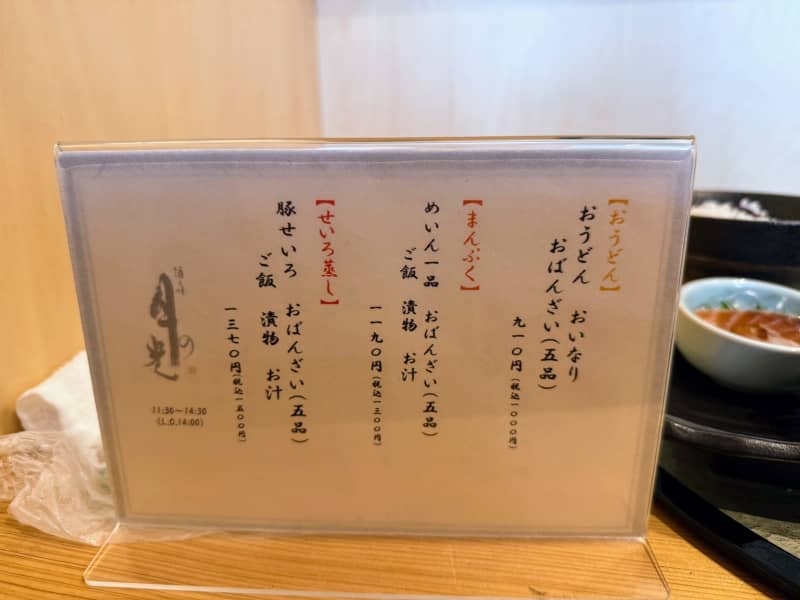 【おうどん】
おうどん　おいなり
おばんざい（五品）
九一〇円（税込一〇〇〇円）
【まんぷく】
めいん一品　おばんざい（五品）
ご飯　漬物　お汁
一一九〇円（税込一三〇〇円）
【せいろ蒸し】
豚せいろ　おばんざい（五品）
ご飯　漬物　お汁
一三七〇円（税込一五〇〇円）
月の光
11:30～14:30
(L.O.14:00)